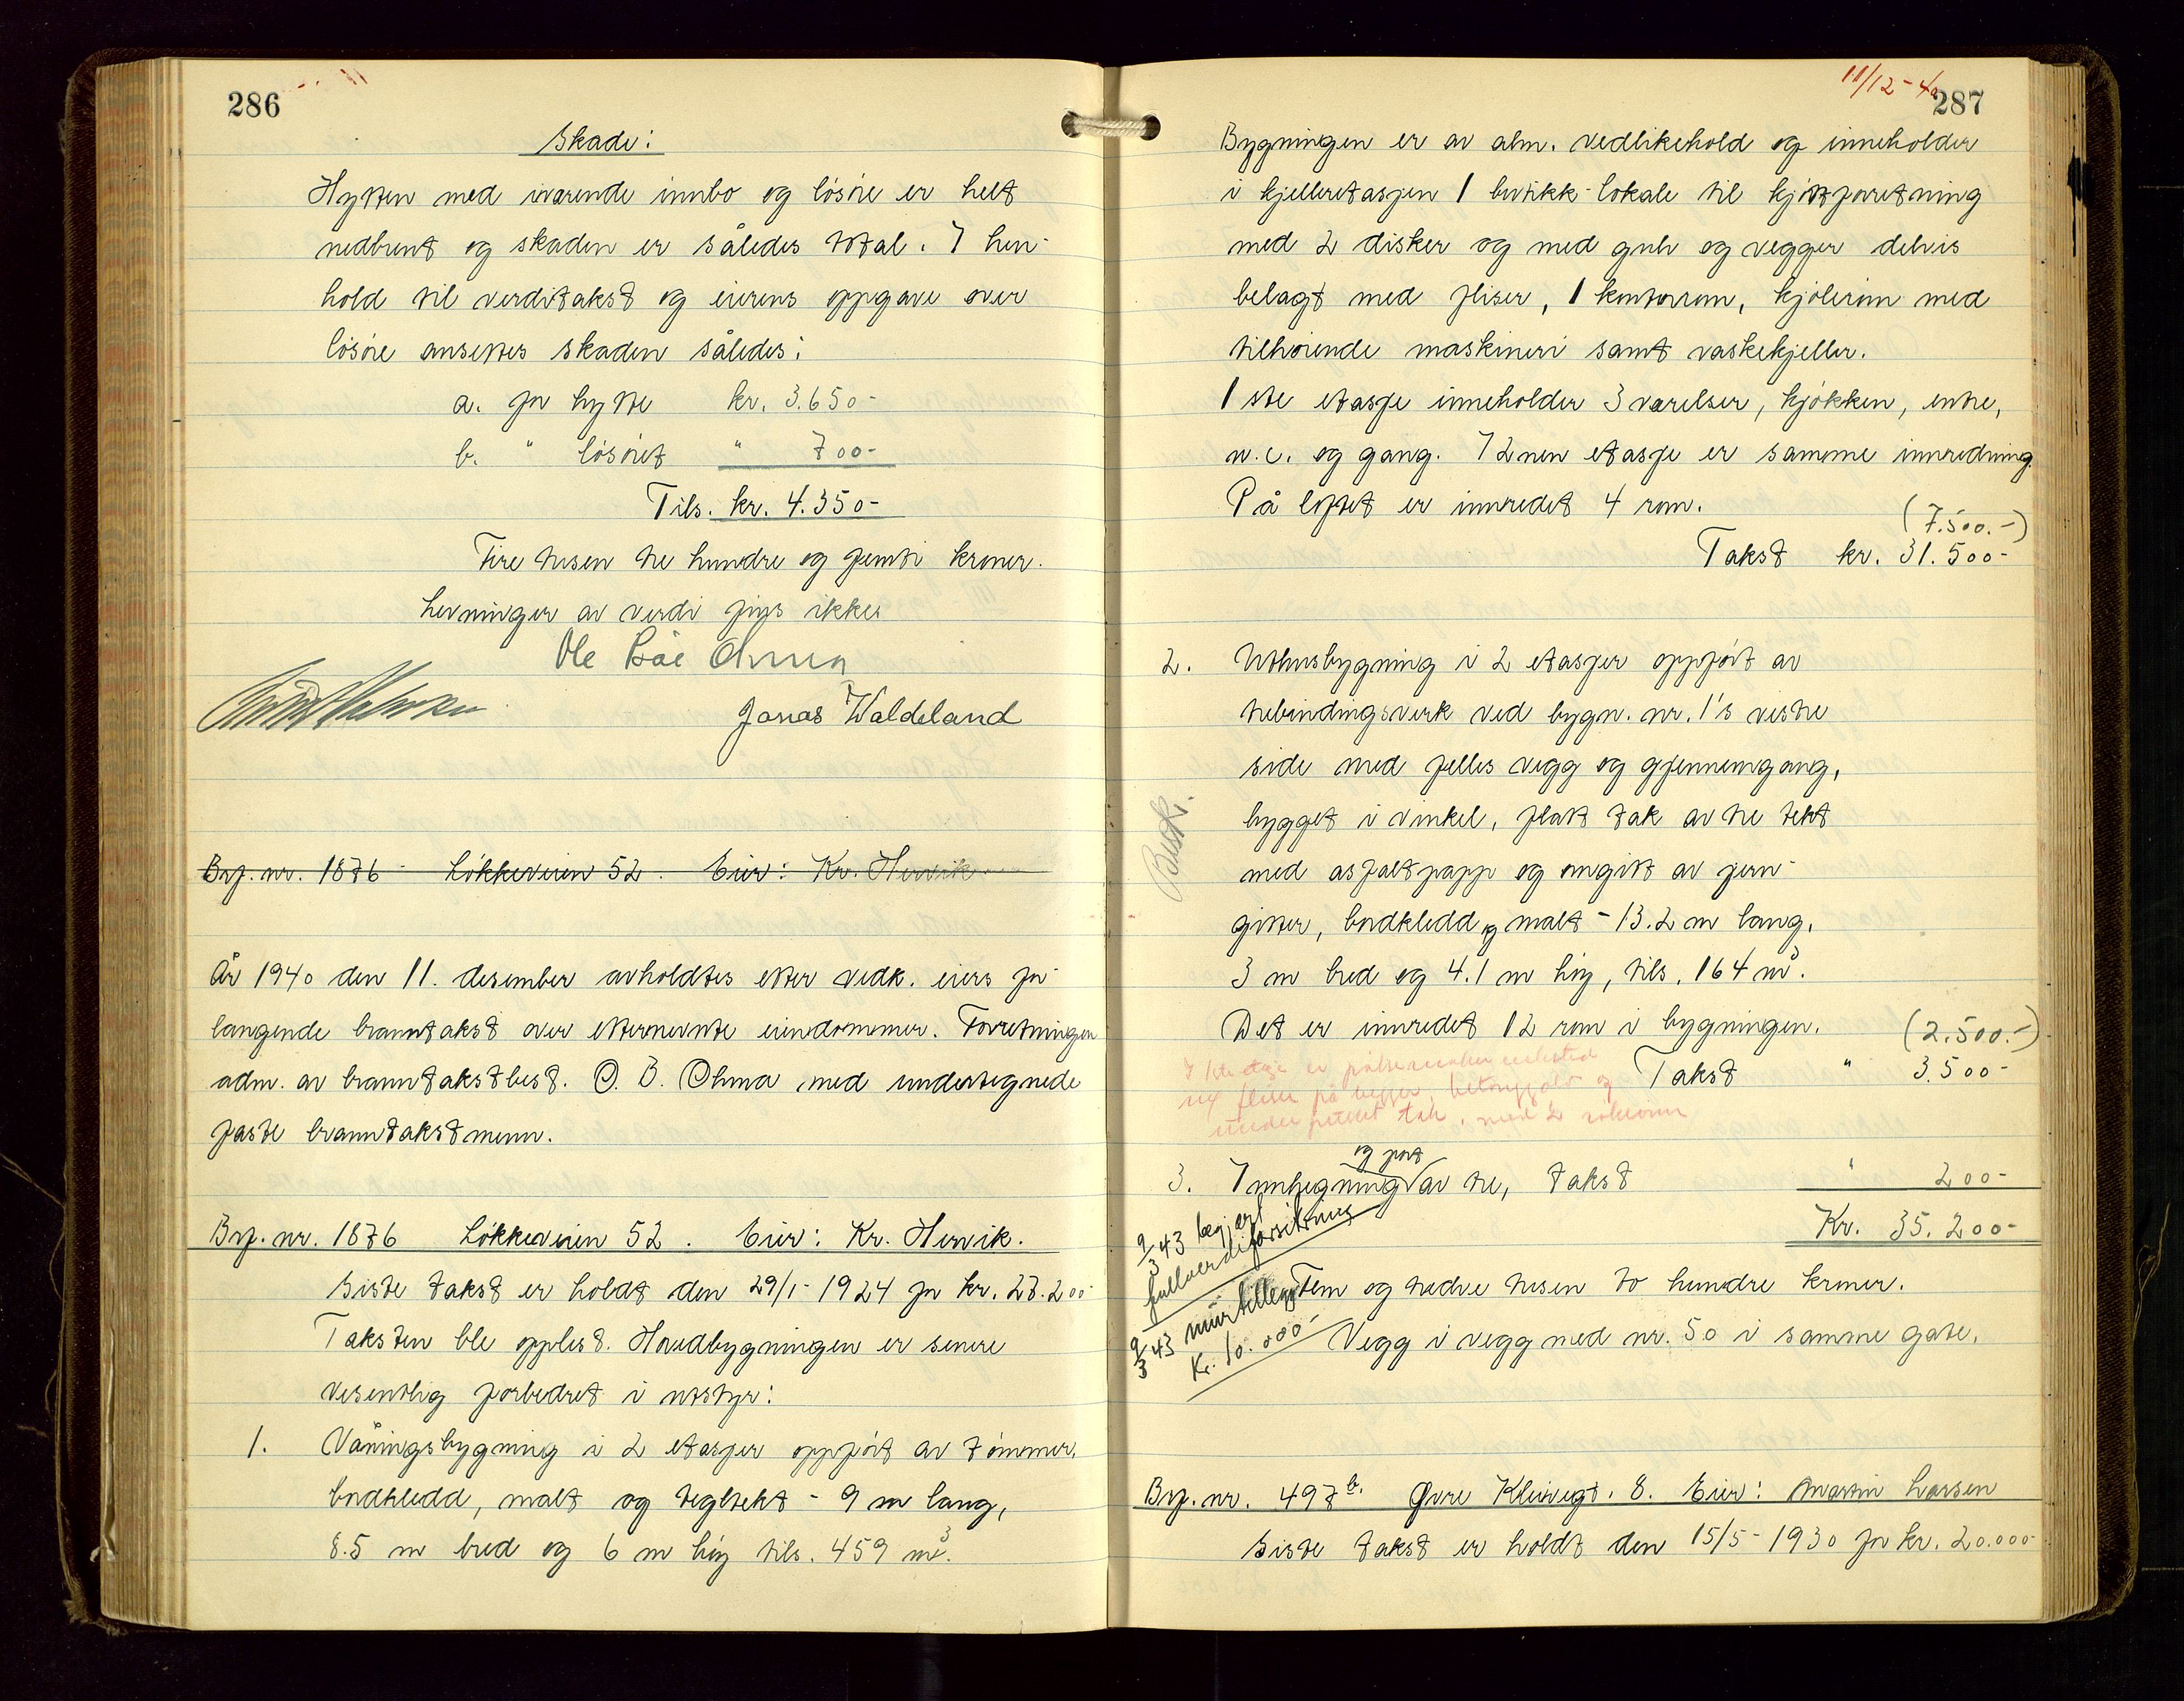 286
Skade:
Hytten med iværende innbo og løsøre er helt
nedbrent og skaden er således total. I hen-
hold til verditakst og eierens oppgave over
løsøre ansettes skaden således:
a. for hytte kr. 3.650-
b. " løsøret " 700-
Tils. kr. 4.350-
Fire tusen tre hundre og femti kroner.
Levninger av verdi fins ikke.
Ole Bøe
Jonas Waldeland
Brf. nr. 1876 Løkkeveien 52. Eier: Kr. Hervik
År 1940 den 11. desember avholdtes etter vedk. eiers for-
langende branntakst over etternevnte eiendommer. Forretningen
adm. av branntakstbest. O. B. Ohma med undertegnede
faste branntakstmenn.
Brf. nr. 1876 Løkkeveien 52. Eier: Kr. Hervik.
Siste takst er holdt den 29/1-1924 for kr. 28.200-
Taksten ble opplest. Hovedbygningen er senere
vesentlig forbedret i utstyr:
1. Våningsbygning i 2 etasjer oppført av tømmer,
bordkledd, malt og tegltekt - 9 m lang,
8.5 m bred og 6 m høy tils. 459 m³.
11/12-40
287
Bygningen er av alm. vedlikehold og inneholder
i kjelleretasjen 1 butikk-lokale til kjøttforretning
med 2 disker og med gulv og vegger delvis
belagt med fliser, 1 kontorrom, kjølerom med
tilhørende maskineri samt vaskekjeller.
1ste etasje inneholder 3 værelser, kjøkken, entre,
w.c. og gang. I 2nen etasje er samme innredning.
På loftet er innredet 4 rom.
(7.500.-)
Takst kr. 31.500-
2. Uthusbygning i 2 etasjer oppført av
trebindingsverk ved bygn. nr. 1's vestre
side med felles vegg og gjennemgang,
bygget i vinkel, flatt tak av tre tekt
med asfaltpapp og omgitt av jern-
gitter, bordkledd og malt - 13.2 m lang,
3 m bred og 4.1 m høy, tils. 164 m³.
Det er innredet 12 rom i bygningen.
(2.500.-)
Takst " 3.500-
I 1ste etasje er pølsemakerverksted
med fliser på vegger, betonggolv og
under tak, med 2
3. Innhegning og port av tre, takst " 200-
Kr. 35.200-
9/3 43 begjært
fullverdiforsikring
Fem og tredve tusen to hundre kroner.
9/3 43 murtillegg
Kr. 10.000-
Vegg i vegg med nr. 50 i samme gate.
Brf. nr. 497 b. Øvre Kleivegt. 8. Eier: Martin Larsen
Siste takst er holdt den 15/5-1930 for kr. 20.000-